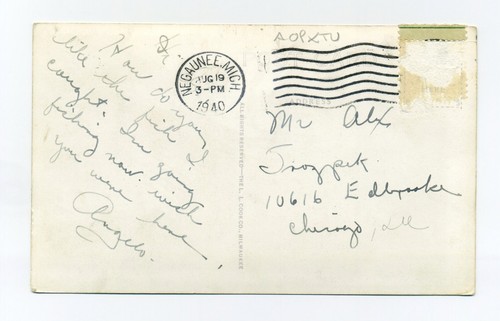 Hi
How do you
like the fish I
caught. I'm going
fishing now. wish
you were here
Angelo.
NEGAUNEE, MICH
AUG 19
3-PM
1940
AOPXTU
ADDRESS
ALL RIGHTS RESERVED—THE L. L. COOK CO., MILWAUKEE
Mr Alex
10616 Edbrooke
Chicago, Ill